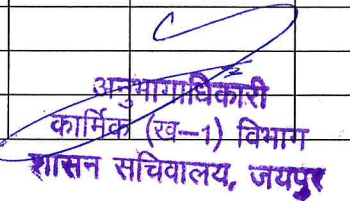 अनुभागाधिकारी
कार्मिक (ख-1) विभाग
शासन सचिवालय, जयपुर